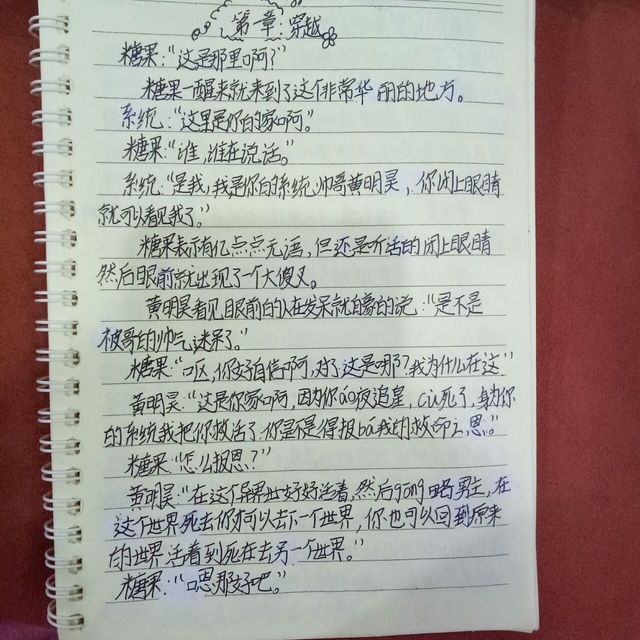 第一章：穿越
糖果：“这是那里啊？”
糖果一醒来就来到了这个非常华丽的地方。
系统：“这里是你的家啊。”
糖果：“谁，谁在说话。”
系统：“是我，我是你的系统帅哥黄明昊，你闭上眼睛
就可以看见我了。”
糖果表示有亿点点无语，但还是听话的闭上眼睛
然后眼前就出现了一个大傻叉。
黄明昊看见眼前的人在发呆就自豪的说：“是不是
被哥的帅气迷呆了。”
糖果：“呕，你好自信啊，对了这是哪？我为什么在这”
黄明昊：“这是你家啊，因为你áo夜追星，cù死了，身为你
的系统我把你救活了，你是不是得报bá我的救命之恩。”
糖果：“怎么报恩？”
黄明昊：“在这个异世好好活着，然后gōng略男主，在
这个世界死去你可以去下一个世界，你也可以回到原来
的世界活着到死在去另一个世界。”
糖果：“嗯那好吧。”